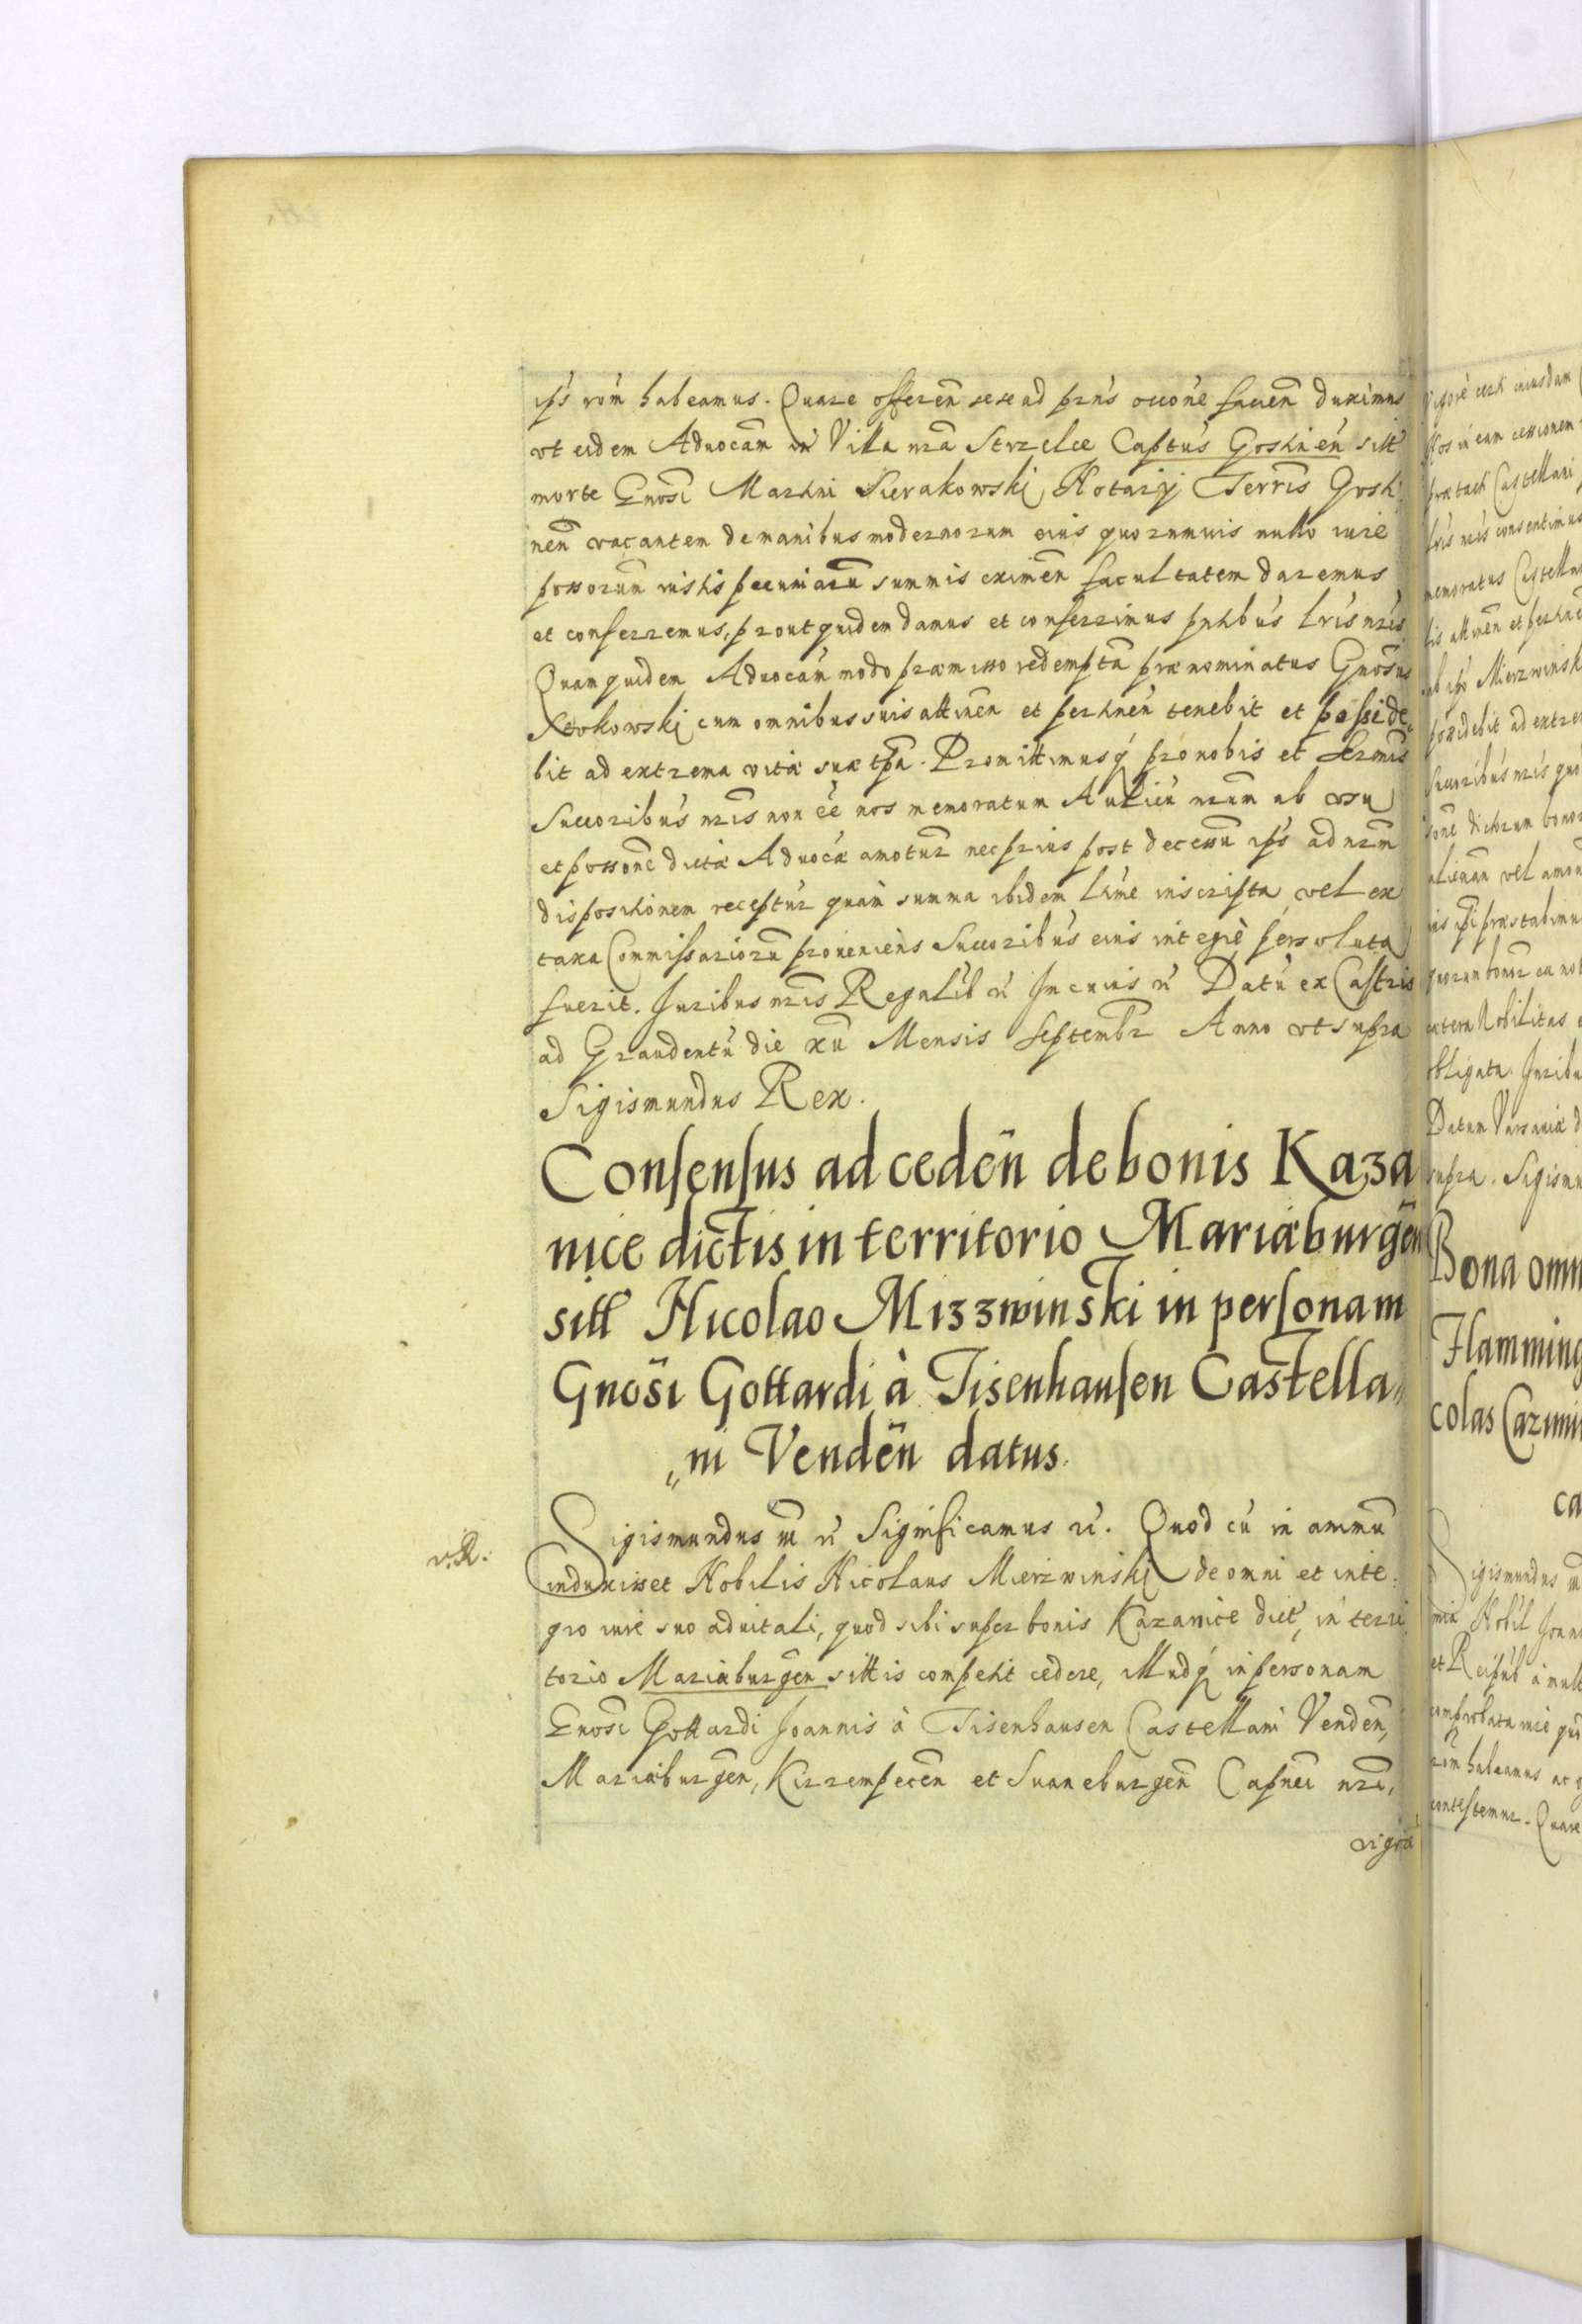 ip̃s rõm habeamus. Quare offeren̄ sese ad pr̃ns occõne facien̄ duximus
vt eidem Aduocãm in Villa nr̃a Strzelce Capt̃us Gostinen̄ sitt
morte Gnosi Martini Sierakowski Notarij Terris Gosti
nen̄ vacantem de manibus modernorum eius quorumuis nullo iure
possorum iustis pecuniarũ summis eximen̄ facultatem daremus
et conferremus, prout quidem damus et conferrimus pñtibus Lris nr̃is
Quam quidem Aduocãm modo præmisso redemptã prænominatus Gnosus
Xtokowski cum omnibus suis attinen̄ et pertinen̄ tenebit et posside„
bit ad extrema vitæ suæ tp̃a. Promittimusq̧ pro nobis et Sermis
Succoribus nr̃is non ẽe nos memoratum Aulicũ nr̃um ab vsu
et possone dictæ Aduocæ amotur̃ nec prius post decessũ ip̃s ad nr̃am
dispositionem receptur̃ quàm summa ibidem Ltime inscripta vel ex
taxa Commissariorũ proueniens Succoribus eius integrè persoluta
fuerit. Juribus nr̃is Regalib ñ In cuius ñ Datũ ex Castris
ad Graudentũ die xii Mensis Septembr̃ Anno vt supra
Sigismundus Rex.
Consensus ad ceden̄ de bonis Kaza
nice dictis in territorio Mariæburgen̄
sitt Nicolao Mizzwinski in personam
Gnosi Gottardi à Tisenhausen Castella„
„ni Venden̄ datus.
Sigismundus iii ñ Significamus ñ. Quod cũ in animũ
induxisset Nobilis Nicolaus Mierzwinski de omni et inte„
gro iure suo aduitali, quod sibi super bonis Kazanice dict, in terri
torio Mariæburgen sittis competit cedere, illudq̧ in personam
Gnosi Gottardi Joannis à Tisenhausen Castellani Venden̄,
Mariæburgen̄, Kirrempecen̄ et Suaneburgen̄ Capnei nr̃i,
vigore
v.R.
Vigore
Nos in eam cessionem
prætacti Castellani
Lris nr̃is consentimus
memoratus Castellanus
ab ip̃o Mierzwinski
possidebit ad extre
Succoribus nr̃is quo
Datum Varsauiæ d
supra. Sigismu
Bona omn
Flamming
colas Cazimi
ca
Sigismundus iii
Nobil Joann
rõm habeamus ac
contestemur. Quare